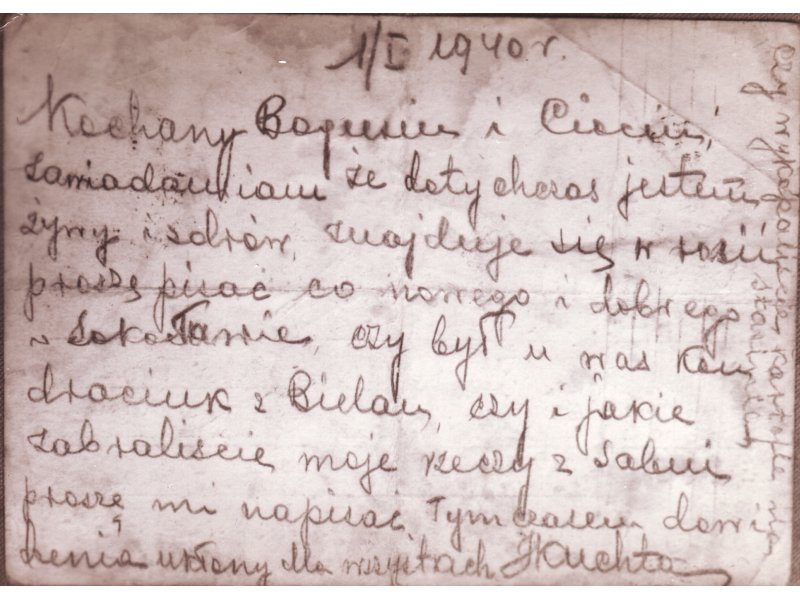 1/I 1940 r.
Kochany Bogusiu i Ciociu,
zawiadamiam że dotychczas jestem
żywy i zdrów, znajduje się w rosii
proszę pisać co nowego i dobrego
w Sokoławie, czy był u was Kon
draciuk z Bielan, czy i jakie
zabraliście moje rzeczy z Sabni
proszę mi napisać, Tymczasem dowi
dzenia ukłony dla wszystkich JKuchta
czy wykopaliście kartofle na